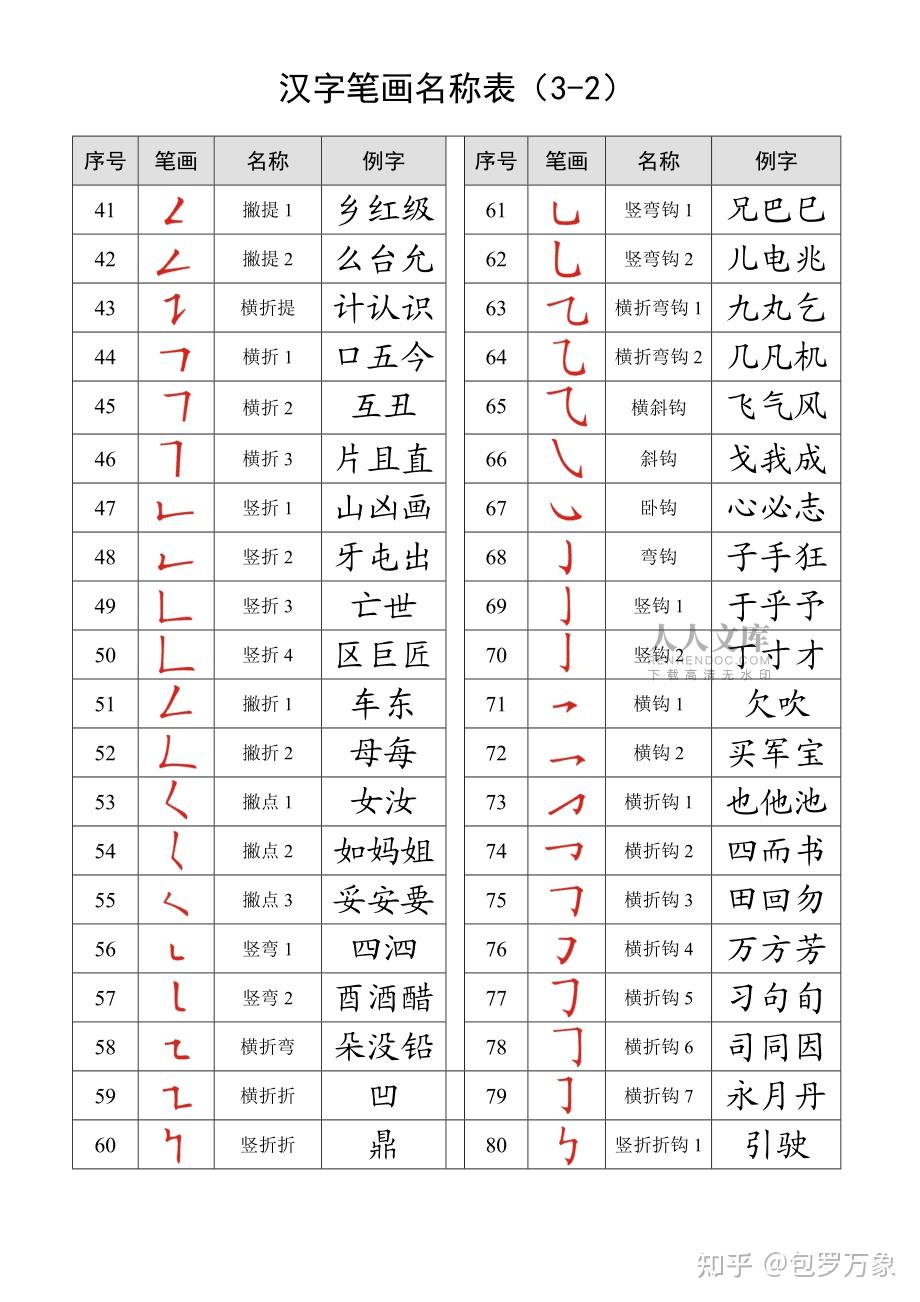 汉字笔画名称表（3-2）
序号 笔画 名称 例字 序号 笔画 名称 例字
41 撇提 1 乡红级 61 竖弯钩 1 兄巴巳
42 撇提 2 么台允 62 竖弯钩 2 儿电兆
43 横折提 计认识 63 横折弯钩 1 九丸乞
44 横折 1 口五今 64 横折弯钩 2 几凡机
45 横折 2 互丑 65 横斜钩 飞气风
46 横折 3 片且直 66 斜钩 戈我成
47 竖折 1 山凶画 67 卧钩 心必志
48 竖折 2 牙屯出 68 弯钩 子手狂
49 竖折 3 亡世 69 竖钩 1 于乎予
50 竖折 4 区巨匠 70 竖钩 2 丁寸才
51 撇折 1 车东 71 横钩 1 欠吹
52 撇折 2 母每 72 横钩 2 买军宝
53 撇点 1 女汝 73 横折钩 1 也他池
54 撇点 2 如妈姐 74 横折钩 2 四而书
55 撇点 3 妥安要 75 横折钩 3 田回勿
56 竖弯 1 四泗 76 横折钩 4 万方芳
57 竖弯 2 酉酒醋 77 横折钩 5 习句旬
58 横折弯 朵没铅 78 横折钩 6 司同因
59 横折折 凹 79 横折钩 7 永月丹
60 竖折折 鼎 80 竖折折钩 1 引驶
人人文库
RENRENDOC.COM
下载高清无水印
知乎 @包罗万象